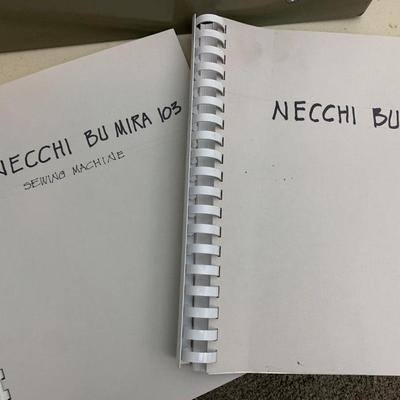 NECCHI BU MIRA 103
SEWING MACHINE
NECCHI BU